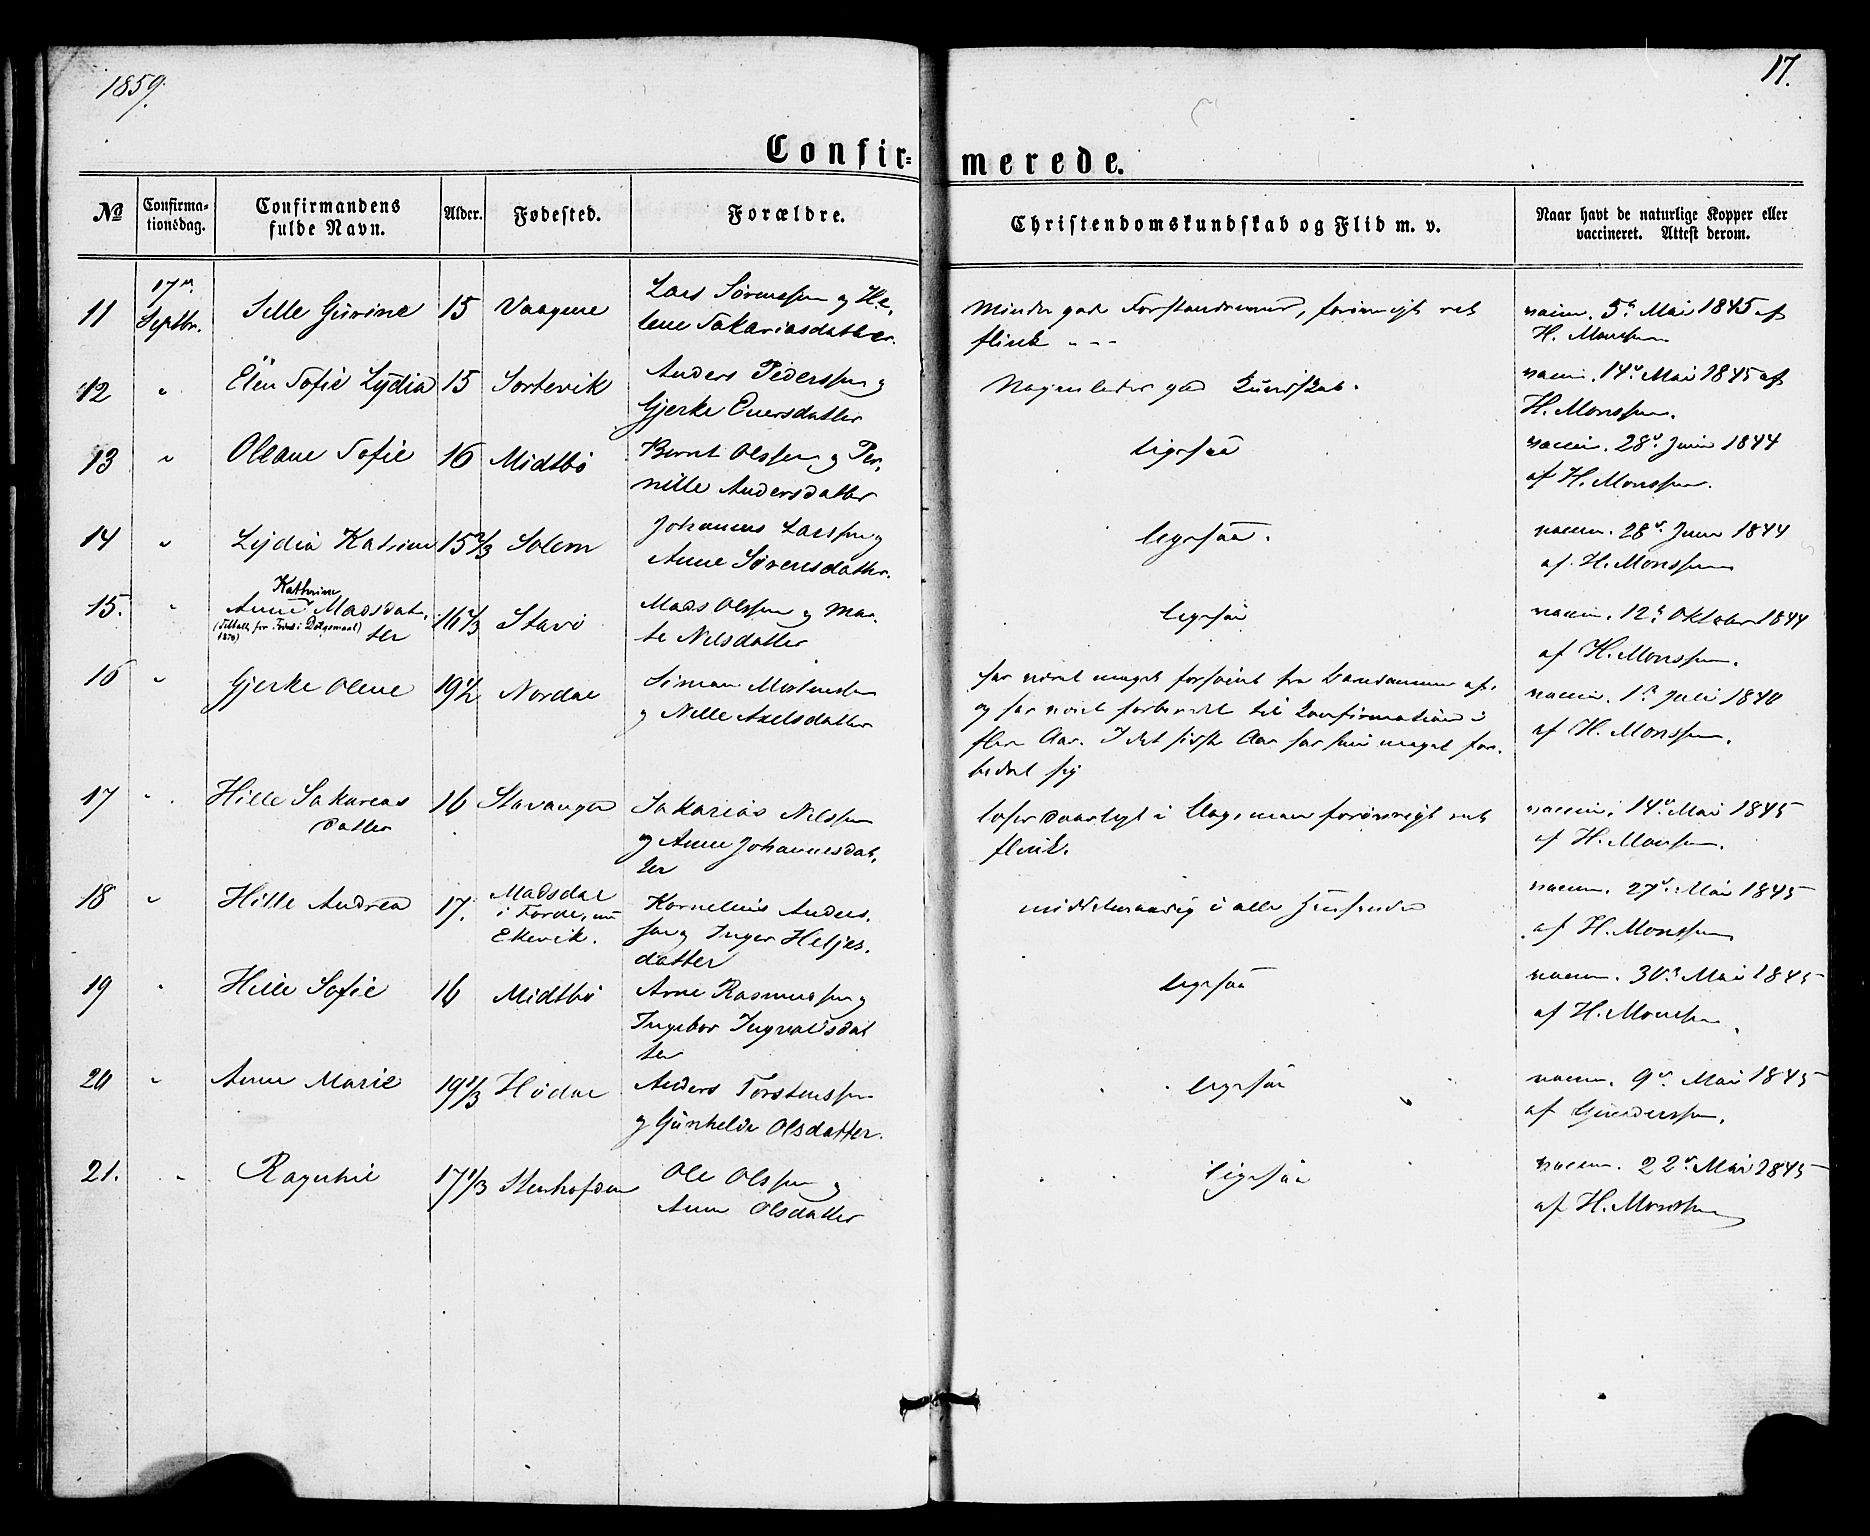 1859.
17.
Confir= merede.
No
Confirma-
tionsdag.
Confirmandens
fulde Navn.
Alder.
Fødested.
Forældre.
Christendomskundskab og Flid m. v.
Naar havt de naturlige Kopper eller
vaccineret. Attest derom.
11 17de Septbr. Sille Gurine 15 Vaagene Lars Sørensen og He-
lene Sakariasdatter.
Mindre god Forstandsevne, forøvrigt ret
flink
vaccin. 5te Mai 1845 af
H. Monssen
12 " Elen Sofie Lydia 15 Sortevik Anders Pederssen og
Gjerke Eversdatter
Nogenledes god Kundskab.
vaccin. 14de Mai 1845 af
H. Monssen.
13 " Oleane Sofie 16 Midtbø Bernt Olssen og Per-
nille Andersdatter
ligesaa
vaccin. 28de Juni 1844
af H. Monssen.
14 " Lydia Katrine 15 2/3 Solem Johannes Larssen og
Anne Sørensdatter.
ligesaa.
vaccin. 28de Juni 1844
af H. Monssen
15. " Kathrine
Anne Madsdat-
ter
16 1/3 Stavø Mads Olssen og Mar-
te Nilsdatter
ligesaa
vaccin. 12te Oktober 1844
af H. Monssen.
16 " Gjerke Olene 19 1/2 Nordal Simon Mortenssen
og Nille Axelsdatter
har været meget forsømt fra Barndommen af,
og har været forberedt til Konfirmation i
flere Aar. I det sidste Aar har hun meget for-
bedret sig
vaccin. 1te Juli 1840
af H. Monssen.
17 " Hille Sakarias
datter
16 Stavanger Sakarias Nilssen
og Anne Johannesdat-
ter
læser daarligt i Bog, men forøvrigt ret
flink.
vaccin. 14de Mai 1845
af H. Monssen.
18 " Hille Andrea 17. Madsdal
i Førde, nu
Ekevik.
Kornelius Anders-
sen og Inger Heljes-
datter
middelmaadig i alle Henseender
vaccin. 27de Mai 1845
af H. Monssen
19 " Hille Sofie 16 Midtbø Arne Rasmussen og
Ingebor Ingvalsdat
ter
ligesaa
vaccin. 30te Mai 1845
af H. Monssen.
20 " Anne Marie 19 1/3 Hødal Anders Torstenssen
og Gunhilde Olsdatter.
ligesaa
vaccin. 9de Mai 1845
af Gunderssen.
21. " Ragnhil 17 1/3 Stenhofden Ole Olssen og
Anne Olsdatter
ligesaa
vaccin. 22de Mai 1845
af H. Monssen